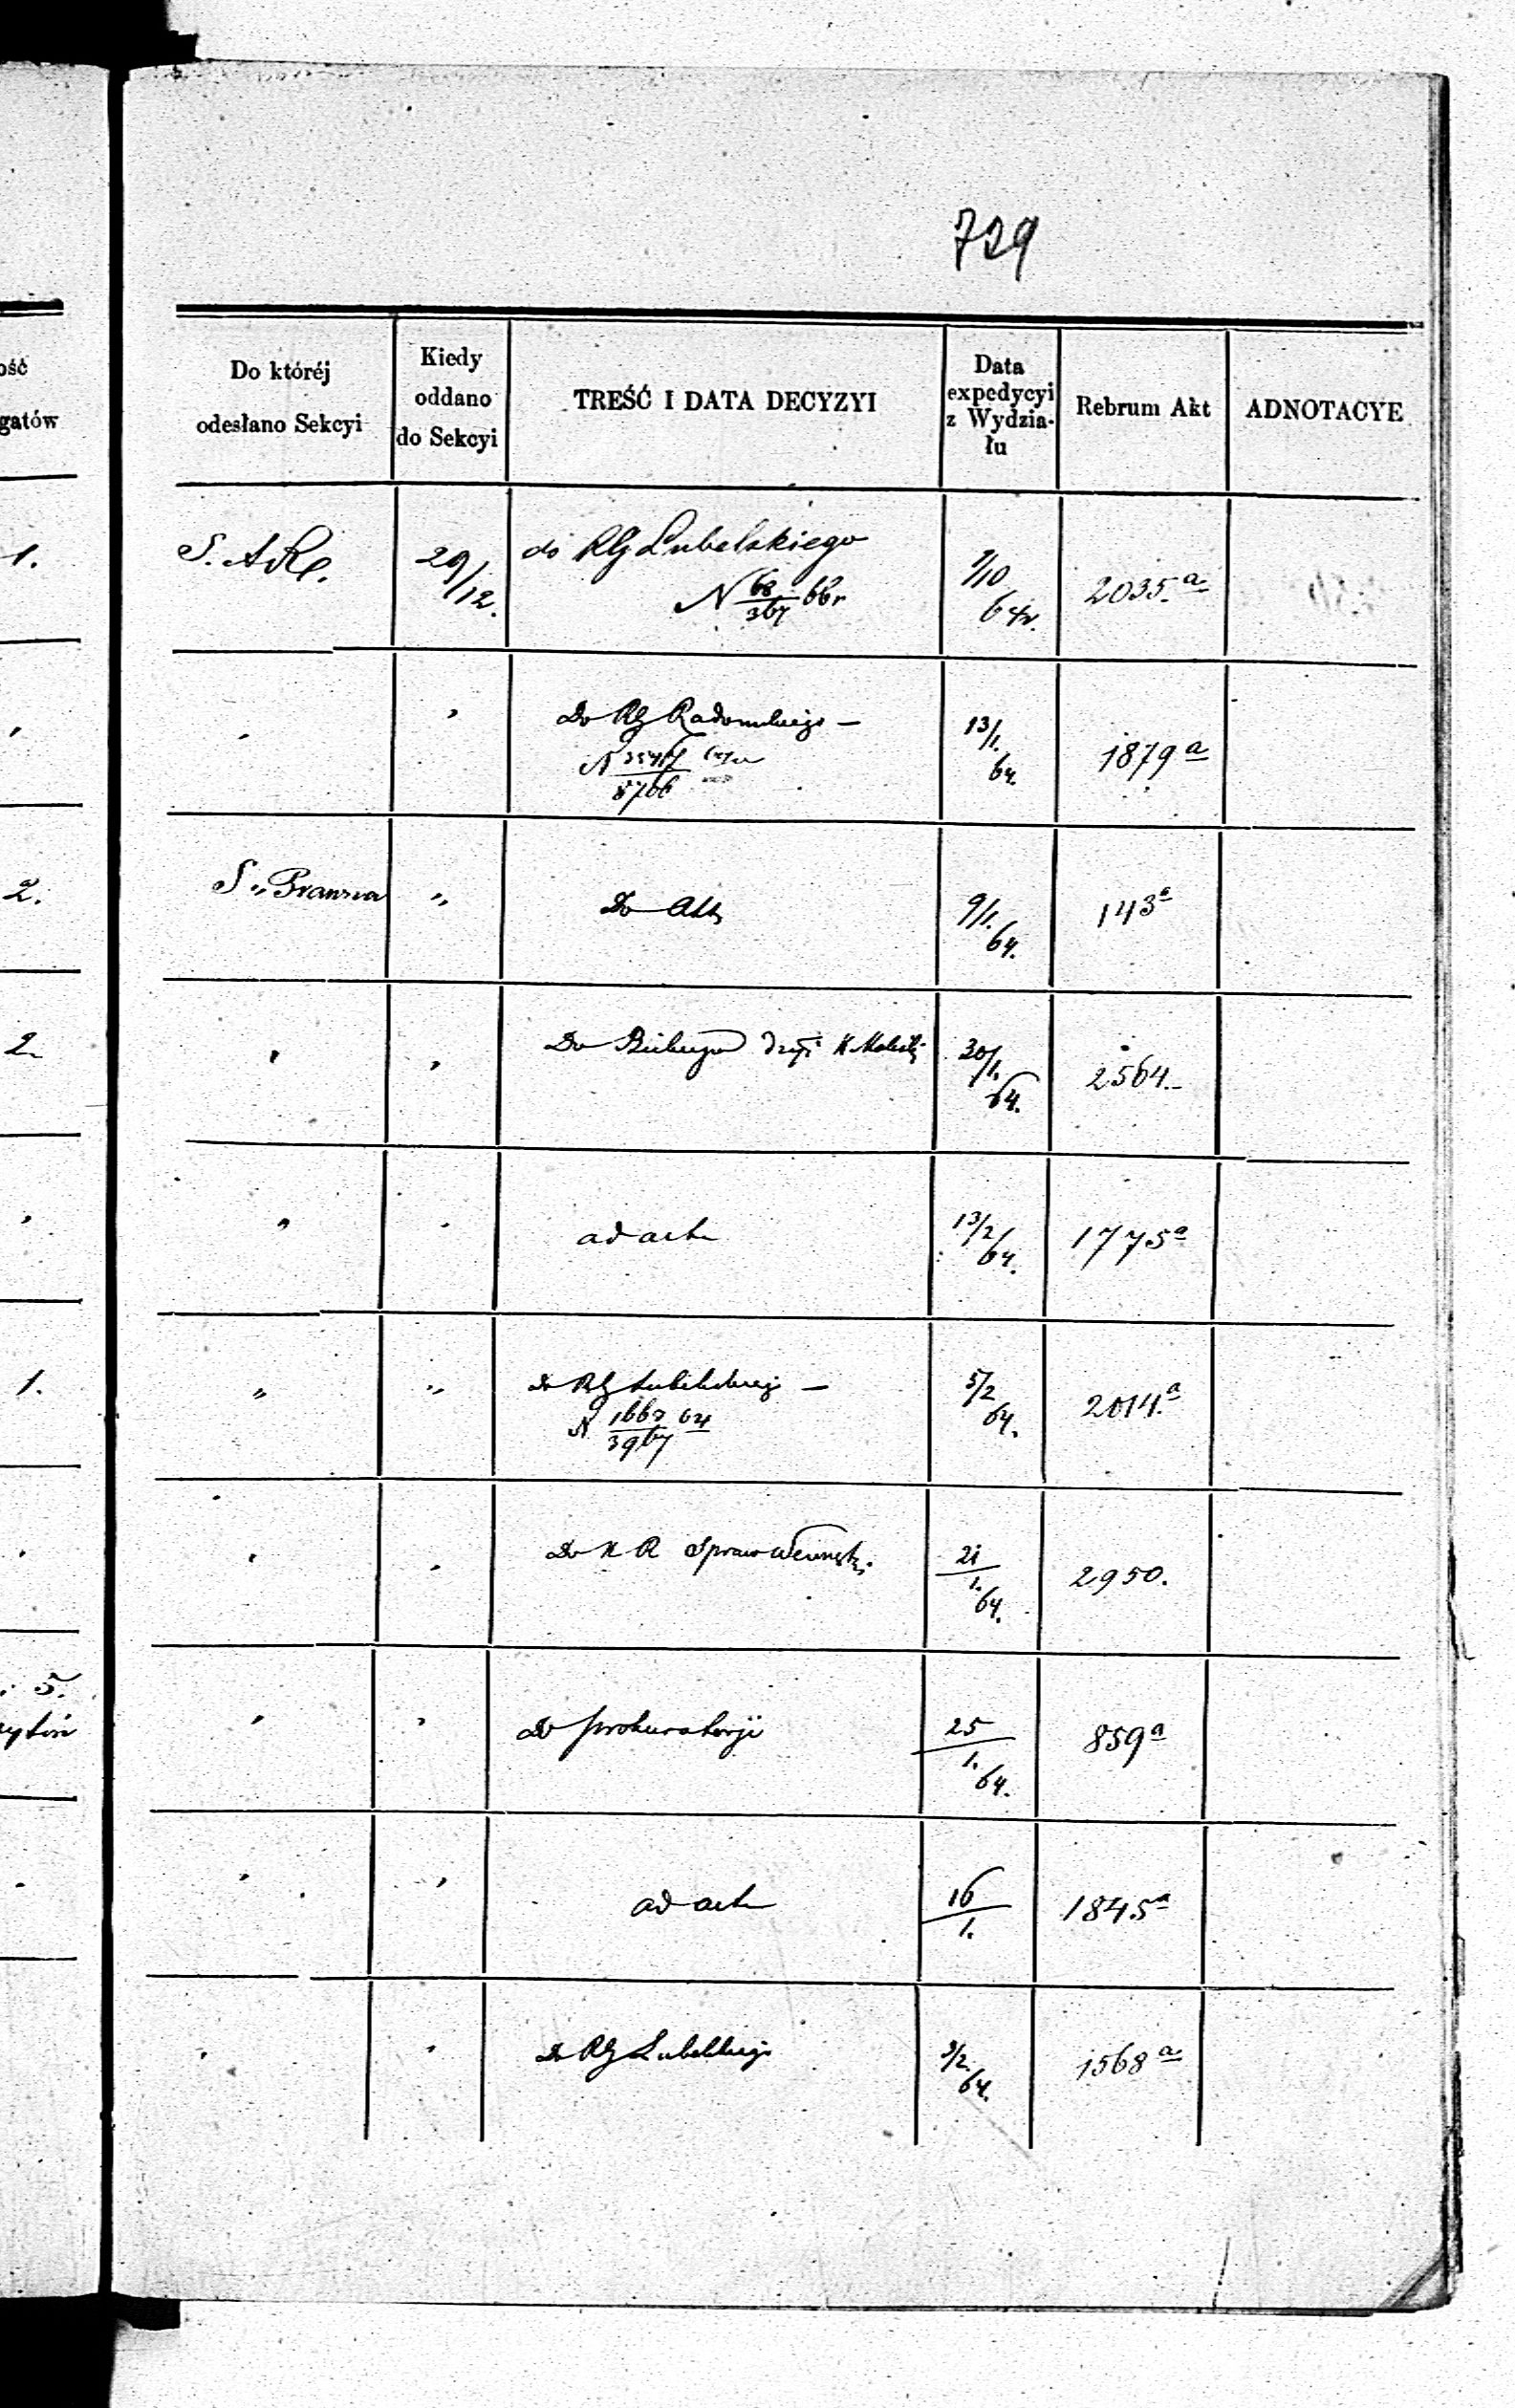 729
ość
gatów
Do któréj
odesłano Sekcyi
Kiedy
oddano
do Sekcyi
TREŚĆ I DATA DECYZYI
Data
expedycyi
z Wydzia-
łu
Rebrum Akt
ADNOTACYE
1.
29/12.
do RG Lubelskiego
N 68/367
2035.a
"
Do RG Radomskiego —
N
8766
13/1.
64.
1879 a
2.
S. Prawna
"
Do Akt
9/1.
64.
143 a
2.
"
"
Do
30/1.
64.
2564.
"
"
ad acta
13/2
64.
1775 a
1.
"
"
Do RG Lubelskiego —
N
3967
64
5/2
64.
2014.a
"
"
Do K R Spraw Wewnętz.
21
1.
64.
2950.
5.
"
"
Do prokuratorji
25
1.
64.
859 a
"
"
ad acta
16
1.
1845 a
"
"
Do RG Lubelskiego
9/2
64.
1568 a